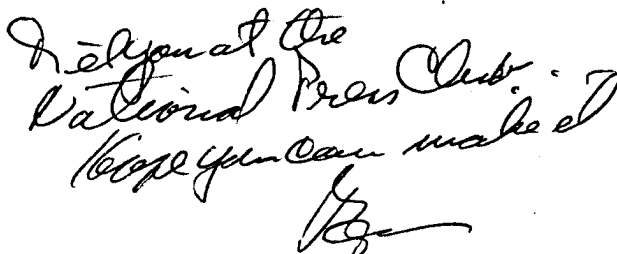 at the
National Press Club . .
Hope you can make it